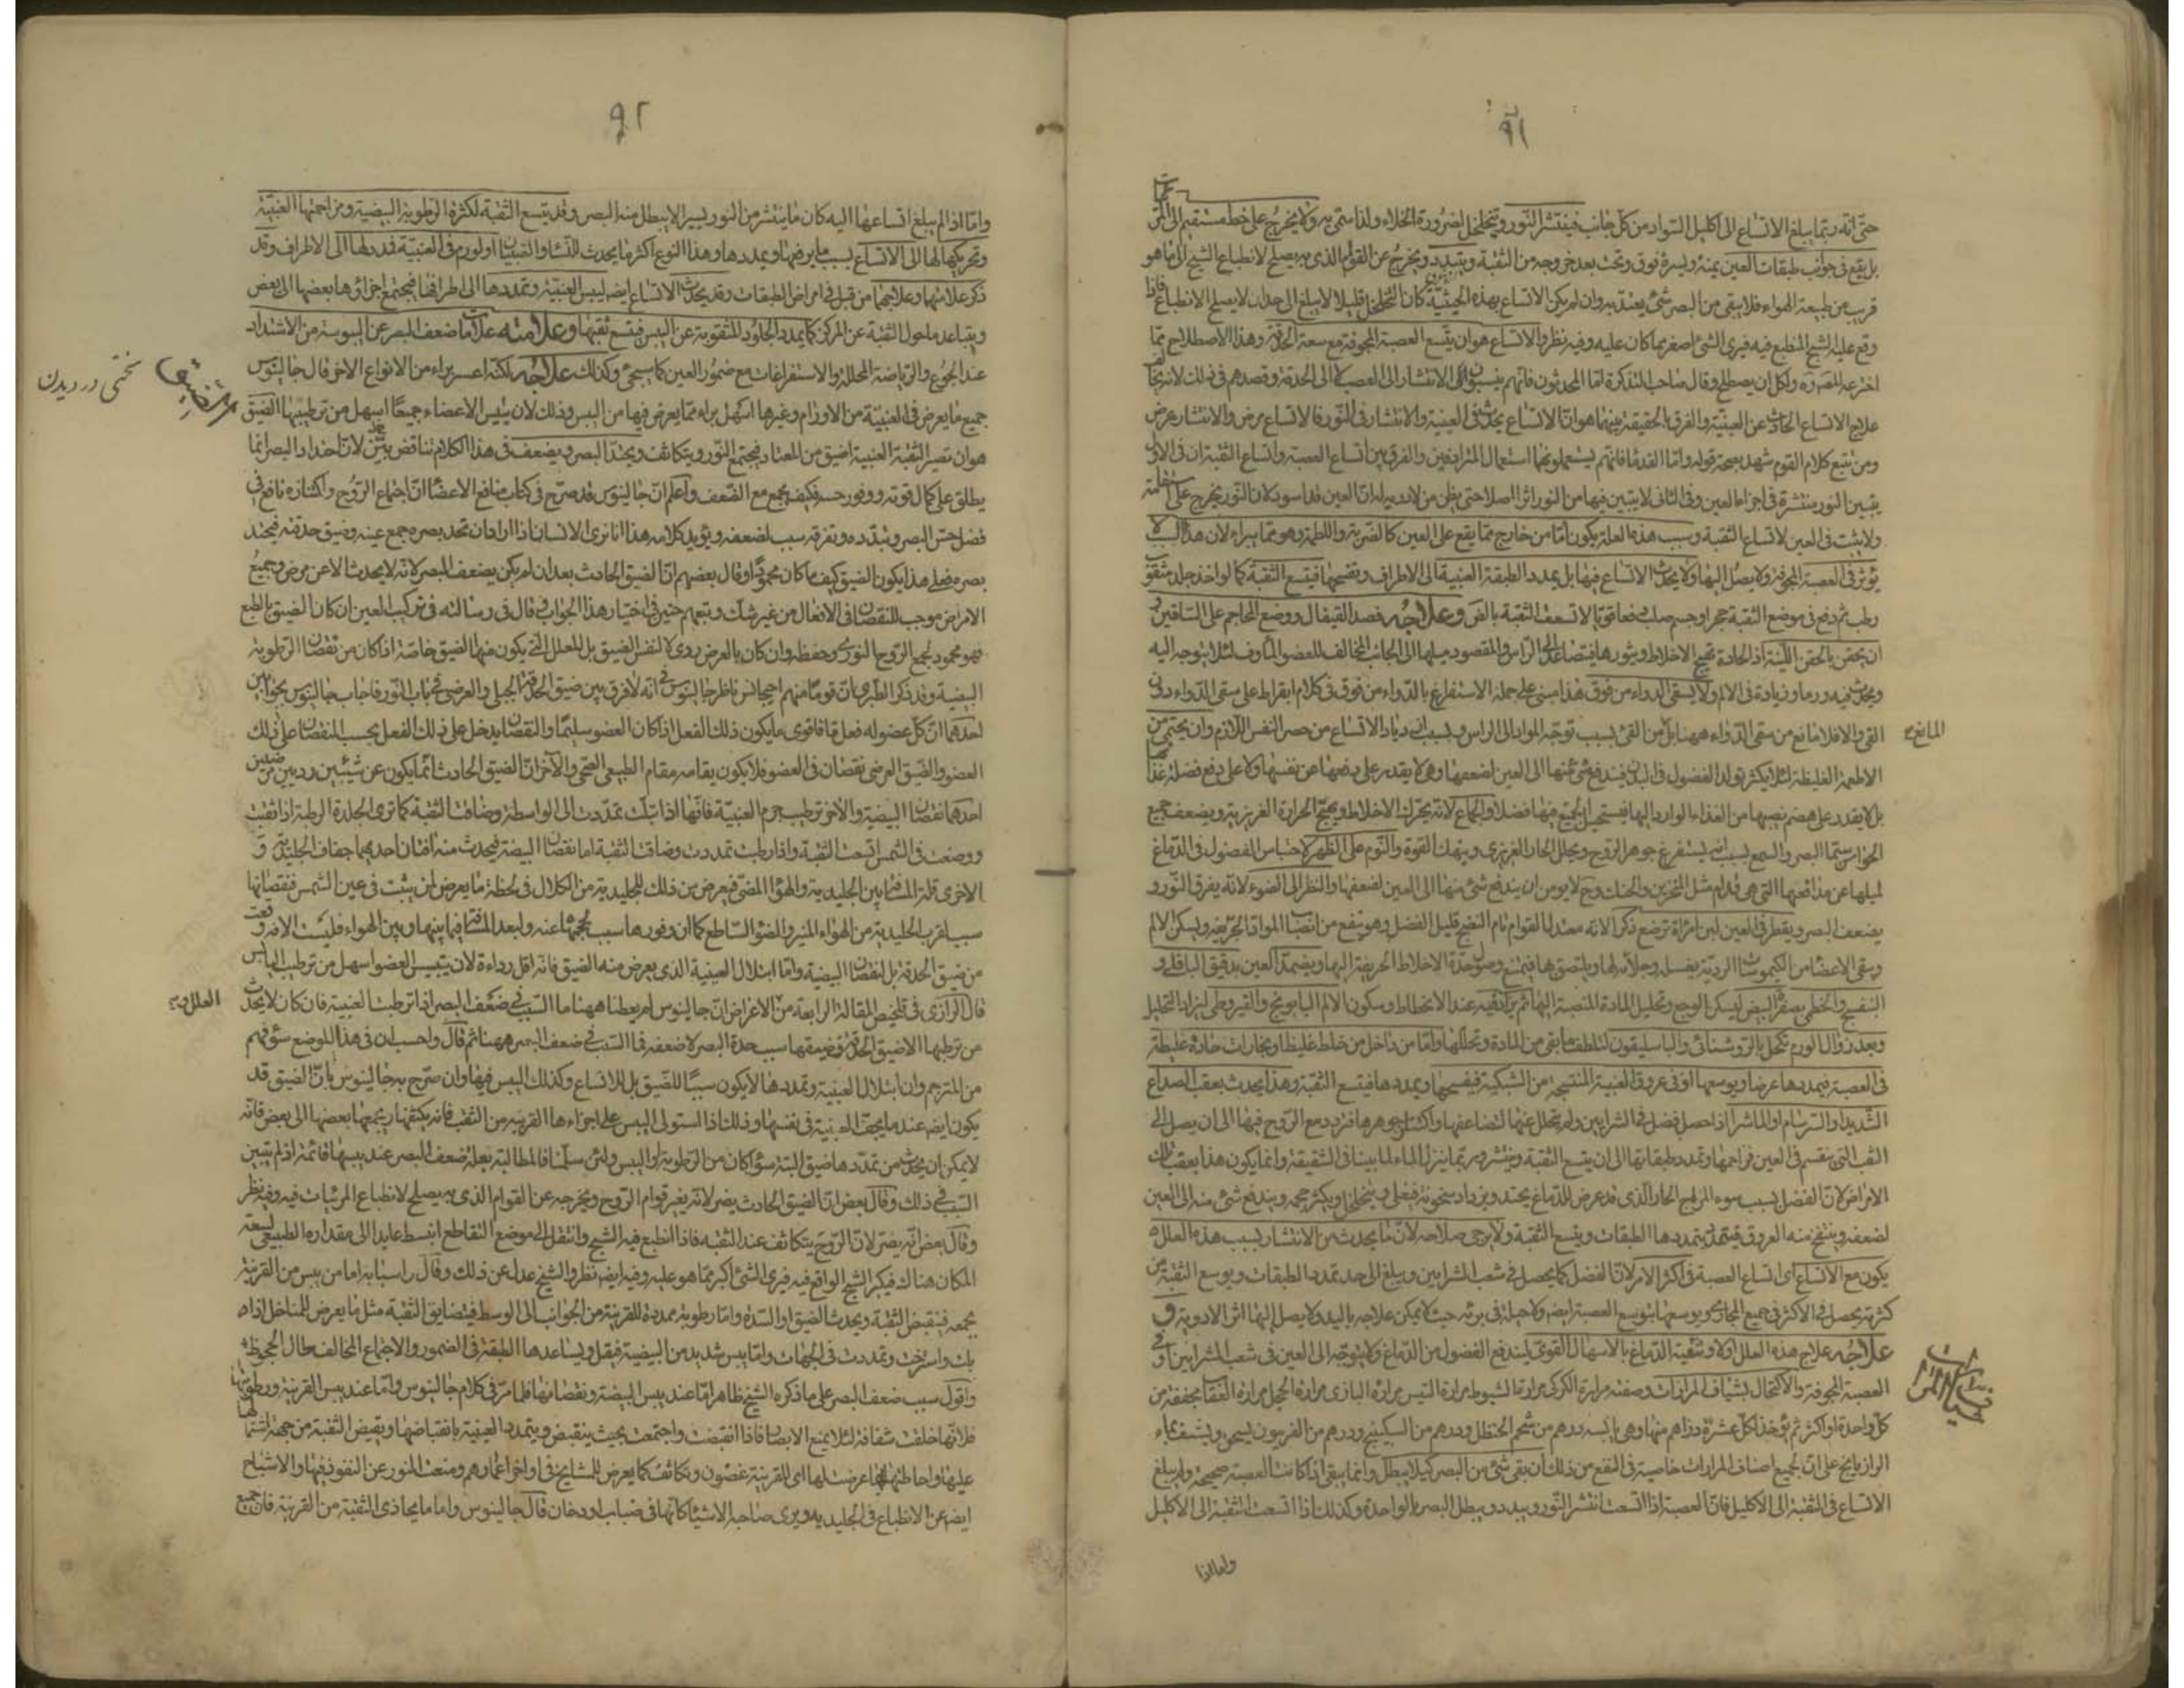 ٩١
حتى انه ربما يبلغ الاتساع الى اكليل السواد من كل جانب فينتشر النور ويتخلخل لضرورة الخلاء ولذا سمى به ولا يخرج على خط مستقيم الى المرئى
بل يقع فى جوانب طبقات العين يمنة ويسرة فوق وتحت بعد خروجه من الثقبة ويتبدد ويخرج عن القوام الذى به يصلح لانطباع الشبح الى ما هو
قريب من طبيعة الهواء فلا يبقى من البصر شئ يعتد به وان لم يكن الاتساع بهذه الحيثية كان التخلخل قليلا لا يبلغ الى حد ان لا يصلح الانطباع فاذا
وقع عليه الشبح المنطبع فيه فيرى الشئ اصغر مما كان عليه وفيه نظر والاتساع هو ان يتسع العصبة المجوفة مع سعة الحدقة وهذا الاصطلاح مما
اخترعه المصره ولكل ان يصطلح وقال صاحب التذكرة اما المحدثون فانهم ينسبون الانتشار الى العصبة الى الحدقة وقصدهم فى ذلك
علاج الاتساع الحادث عن العنبية والفرق الحقيقة بينهما هو ان الاتساع يحدث فى العنبية والانتشار فى النور فالاتساع مرض والانتشار عرض
ومن تتبع كلام القوم شهد بصحة قوله واما القدماء فانهم يستعملونهما استعمال المترادفين والفرق بين اتساع العصبة واتساع الثقبة ان فى الاول
يتبين النور منتشرة فى اجزاء العين وفى الثانى لا يتبين فيها من النور اثرا اصلا حتى يظن من لا دربة له ان العين قد اسود لان النور يخرج على استقامته
ولا يثبت فى العين لاتساع الثقبة وسبب هذه العلة يكون اما من خارج مما يقع على العين كالضربة واللطمة وهو مما يبراء لان هذا السبب لا
يؤثر فى العصبة المجوفة ولا يصل اليها ولا يحدث الاتساع فيها بل يمدد الطبقة العنبية الى الاطراف وتفسحها فيتسع الثقبة كما لو اخذ جلد مثقوب
رطب ثم دفع فى موضع الثقبة حجر او جسم صلب دفعا قويا لاتسعت الثقبة بالضرورة وعلاجه فصد القيفال ووضع المحاجم على الساقين و
ان يحقن بالحقن اللينة اذ الحادة تهيج الاخلاط ويثورها فيتصاعد الى الراس والمقصود ميلها الى الجانب المخالف للعضو الماوف لئلا يتوجه اليه
ويحدث فيه ورما وزيادة فى الالم ولا يسقى الدواء من فوق هذا مبنى على حمله الاستفراغ بالدواء من فوق فى كلام ابقراط على سقى الدواء دون
القئ والا فلا مانع من سقى الدواء ههنا بل من القئ بسبب توجه المواد الى الراس وبسبب ازدياد الاتساع من حصر النفس اللازم وان يحتمى من
المانع
الاطعمة الغليظة لئلا يكثر تولد الفضول فى البدن فيندفع شئ منها الى العين لضعفها وهى لا يقدر على دفعها عن نفسها ولا على دفع فضلة غذائها
بل لا يقدر على هضم نصيبها من الغذاء الوارد اليها فيستحيل الجميع فيها فضلا والجماع لانه يحرك الاخلاط ويهيج الحرارة الغريزية ويضعف جميع
الحواس سيما البصر والسمع بسبب انه يستفرغ جوهر الروح ويحلل الحار الغريزى وينهك القوة والنوم على الظهر لاحتباس الفضول فى الدماغ
لميلها عن مدافعها التى هى قدام مثل المنخرين والحنك وح لا يومن ان يندفع شئ منها الى العين لضعفها والنظر الى الضوء لانه يفرق النور و
يضعف البصر ويقطر فى العين لبن امراة ترضع ذكرا لانه معتدل القوام تام النضج قليل الفضل وهو ينفع من انصباب المواد الحريفة ويسكن الالم
وينقى الاعضاء من الكيموسات الردية بغسله وجلائه لها ويلتصق بها فيمنع وصول حدة الاخلاط الحريفة اليها ويضمد العين بدقيق الباقلى و
البنفسج والخطمى بصفرة البيض ليسكن الوجع وتحليل المادة المنصبة اليها ثم يزاد فيه عند الانحطاط وسكون الالم البابونج والقيروطى ليزداد التحليل
وبعد زوال الورم تكحل بالروشنائى والباسليقون لتلطف ما بقى من المادة وتحللها واما من داخل من خلط غليظ او بخارات حادة غليظة
فى العصبة فيمددها عرضا ويوسعها او فى عروق العنبية المنتسجة من الشبكية فيفسحها ويمددها فيتسع الثقبة وهذا يحدث بعقب الصداع
الشديد والسرسام او الماشرا اذا حصل فضل فى الشرايين ولم يتحلل عنها لتضاعفها واكتناز جوهرها فتردد مع الروح فيها الى ان يصل الى
الثقب التى ينقسم فى العين فزاحمها وتمدد طبقاتها الى ان يتسع الثقبة وينتشر وربما ينزل الماء لما بينا فى الشقيقة وانما يكون هذا بعقب تلك
الامراض لان الفضل بسبب سوء المزاج الحار الذى قد عرض للدماغ يحتد ويزداد سخونة فيغلى ويتخلخل ويكثر حجمه ويندفع شئ منه الى العين
لضعفه وينتفخ منه العروق فيتمدد بتمددها الطبقات ويتسع الثقبة ولا يرجى صلاحه لان ما يحدث من الانتشار بسبب هذه العلل لا
يكون مع الاتساع اى اتساع العصبة فى اكثر الامر لان الفضل كما يحصل فى شعب الشرايين ويبلغ الى حد تمدد الطبقات ويوسع الثقبة من
كثرته يحصل فى الاكثر فى جميع المجارى ويوسعها بتوسع العصبة ايضا ولا حيلة فى برئه حيث لا يمكن علاجه باليد ولا يصل اليها اثر الادوية و
علاجه علاج هذه العلل اولا وتنقية الدماغ بالاسهال القوى ليندفع الفضول من الدماغ ولا يتوجه الى العين فى شعب الشرايين او فى
العصبة المجوفة والاكتحال بشياف المرارات وصفته مرارة الكركى مرارة الشبوط مرارة التيس مرارة البازى مرارة الحجل مرارة العقاب مجففة من
كل واحدة او اكثر ثم يؤخذ لكل عشرة دراهم منها وهى يابسة درهم من شحم الحنظل ودرهم من السكبينج ودرهم من الفربيون يسحق ويشيف بماء
الرازيانج على ان لجميع اصناف المرارات خاصية فى النفع من ذلك ان بقى شئ من البصر كيلا يبطل وانما يبقى اذا كانت العصبة صحيحة ولم يبلغ
الاتساع فى الثقبة الى الاكليل فان العصبة اذا اتسعت انتشر النور ويتبدد ويبطل البصر بالواحدة وكذلك اذا اتسعت الثقبة الى الاكليل
واما اذا
٩٢
واما اذا لم يبلغ اتساعها اليه كان ما ينتشر من النور يسيرا لا يبطل منه البصر وقد يتسع الثقبة لكثرة الرطوبة البيضية ومزاحمتها العنبية
وتحريكها لها الى الاتساع بسبب ما يرضها ويمددها وهذا النوع اكثر ما يحدث للنساء والصبيان او لورم فى العنبية فمددها الى الاطراف وقد
ذكر علاماتها وعلاجها من قبل فى امراض الطبقات وقد يحدث الاتساع ايضا ليبس العنبية وتمددها الى اطرافها فيجتمع اجزاؤها بعضها الى بعض
ويتباعد ما حول الثقبة عن المركز كما يمدد الجلود المثقوبة عن اليبس فيتسع ثقبها وعلامته علامات ضعف البصر عن اليبوسة من الاشتداد
عند الجوع والرياضة المحللة والاستفراغات مع ضمور العين كما سيجئ وكذلك علاجه لكنه اعسر براء من الانواع الاخر قال جالينوس
جميع ما يعرض فى العنبية من الاورام وغيرها اسهل براء مما يعرض فيها من اليبس وذلك لان يبس الاعضاء جميعا اسهل من ترطيبها الضيق
مرض ضيق
تنگی در دیدن
هو ان تصير الثقبة العنبية اضيق من المعتاد فيجتمع النور ويتكاثف ويحتد البصر ويضعف فى هذا الكلام تناقض بين لان احتداد البصر انما
يطلق على كمال قوته ووفور حسه فكيف يجمع مع الضعف واعلم ان جالينوس قد صرح فى كتاب منافع الاعضاء ان اجتماع الروح واكتنازه نافع فى
فضل حس البصر وتبدده وتفرقه سبب لضعفه ويؤيد كلامه هذا انا نرى الانسان اذا اراد ان تحد بصره جمع عينه وضيق حدقته فيحتد
بصره فعلى هذا يكون الضيق كيف ما كان محمودا وقال بعضهم ان الضيق الحادث بعد ان لم يكن يضعف البصر لانه لا يحدث الا عن مرض وجميع
الامراض موجب للنقصان فى الافعال من غير شك وتبعهم حنين فى اختيار هذا الجواب فقال فى رسالته فى تركيب العين ان كان الضيق بالطبع
فهو محمود لجمع الروح النورى وحفظه وان كان بالعرض ردى لا لنفس الضيق بل للعلل التى يكون منها الضيق خاصة اذا كان من نقصان الرطوبة
البيضية وقد ذكر الطبرى ان قوما منهم ناظر جالينوس فى انه لا فرق بين ضيق الحدقة الجبلى والعرضى فى باب النور فاجاب جالينوس بجوابين
احدهما ان كل عضو له فعل ما فاقوى ما يكون ذلك الفعل اذا كان العضو سليما والنقصان يدخل على ذلك الفعل بحسب النقصان على ذلك
العضو والضيق العرضى نقصان فى العضو فلا يكون يقامه مقام الطبيعى الصحى والآخر ان الضيق الحادث انما يكون عن شيئين رديين ضدين
احدهما نقصان البيضية والآخر ترطيب جرم العنبية فانها اذا تبلت تمددت الى الواسطة وضاقت الثقبة كما ترى الجلدة الرطبة اذا ثقبت
ووضعت فى الشمس اتسعت الثقبة واذا رطبت تمددت وضاقت الثقبة اما نقصان البيضة فيحدث منه آفتان احديهما جفاف الجليدية و
الاخرى قلة المسافة بين الجليدية والهواء المضئ فيعرض من ذلك للجليدية من الكلال فى لحظة ما يعرض لمن يثبت فى عين الشمس فنقصانها
سبب لقرب الجليدية من الهواء المنير والضوء الساطع كما ان وفورها سبب لحجبها عنه ولبعد المسافة فيما بينها وبين الهواء فليست الآفة وقعت
من ضيق الحدقة بل لنقصان البيضية واما ابتلال العنبية الذى يعرض منه الضيق فانه اقل رداءة لان يتيبس العضو اسهل من ترطب اليابس
قال الرازى فى تلخيص المقالة الرابعة من العلل والاعراض ان جالينوس لم يعطنا ههنا ما السبب فى ضعف البصر اذا ترطبت العنبية فان كان لا يحدث
من ترطيبها الا ضيق الحدقة وضيقها سبب حدة البصر لا ضعفه فما السبب فى ضعف البصر ههنا ثم قال واحسب ان فى هذا الموضع سؤ فهم
من المترجم وان ابتلال العنبية وتمددها لا يكون سببا للضيق بل للاتساع وكذلك اليبس فيها وان صرح به جالينوس بان الضيق قد
يكون ايضا عندما يجف العنبية فى نفسها وذلك اذا استولى اليبس على اجزاءها القريبة من الثقب فانه يكثفها ويجمعها بعضها الى بعض فانه
لا يمكن ان يحدث من تمددها ضيق البتة سواء كان من الرطوبة او اليبس ولئن سلمنا فالمطالبة بعلة ضعف البصر عند يبسها قائمة اذ لم يتبين
السبب فى ذلك وقال بعض ان الضيق الحادث يضر لانه يغير قوام الروح ويخرجه عن القوام الذى به يصلح لانطباع المرئيات فيه وفيه نظر
وقال بعض انه يضر لان الروح يتكاثف عند الثقبة فاذا انطبع فيه الشبح وانتقل الى موضع التقاطع انبسط عايدا الى مقداره الطبيعى لسعة
المكان هناك فيكبر الشبح الواقع فيه فيرى الشئ اكبر مما هو عليه وفيه ايضا نظر والشيخ عدل عن ذلك وقال اسبابه اما من يبس من القرنية
يجمعه فتقبض الثقبة ويحدث الضيق او السدة واما رطوبة ممددة للقرنية من الجوانب الى الوسط فيتضايق الثقبة مثل ما يعرض للمناخل اذا
بلت واسترخت وتمددت فى الجهات واما يبس شديد من البيضية فيقل ويساعدها الطبقة فى الضمور والاجتماع المخالف حال الجحوظ
واقول سبب ضعف البصر على ما ذكره الشيخ ظاهر اما عند يبس البيضة ونقصانها فلما مر فى كلام جالينوس واما عند يبس القرنية ورطوبتها
فلانها خلقت شفافة لئلا يمنع الابصار فاذا انقبضت واجتمعت بحيث ينقبض ويتمدد العنبية بانقباضها ويقبض الثقبة من جهة اشتمالها
عليها واحاطتها بها عرضت لها اى للقرنية غضون وتكاثف كما يعرض للمشايخ فى اواخر اعمارهم ومنعت النور عن النفوذ فيها والاشباح
ايضا عن الانطباع فى الجليدية ويرى صاحبه الاشياء كانها فى ضباب او دخان قال جالينوس واما ما يحاذى الثقبة من القرنية فان جميع